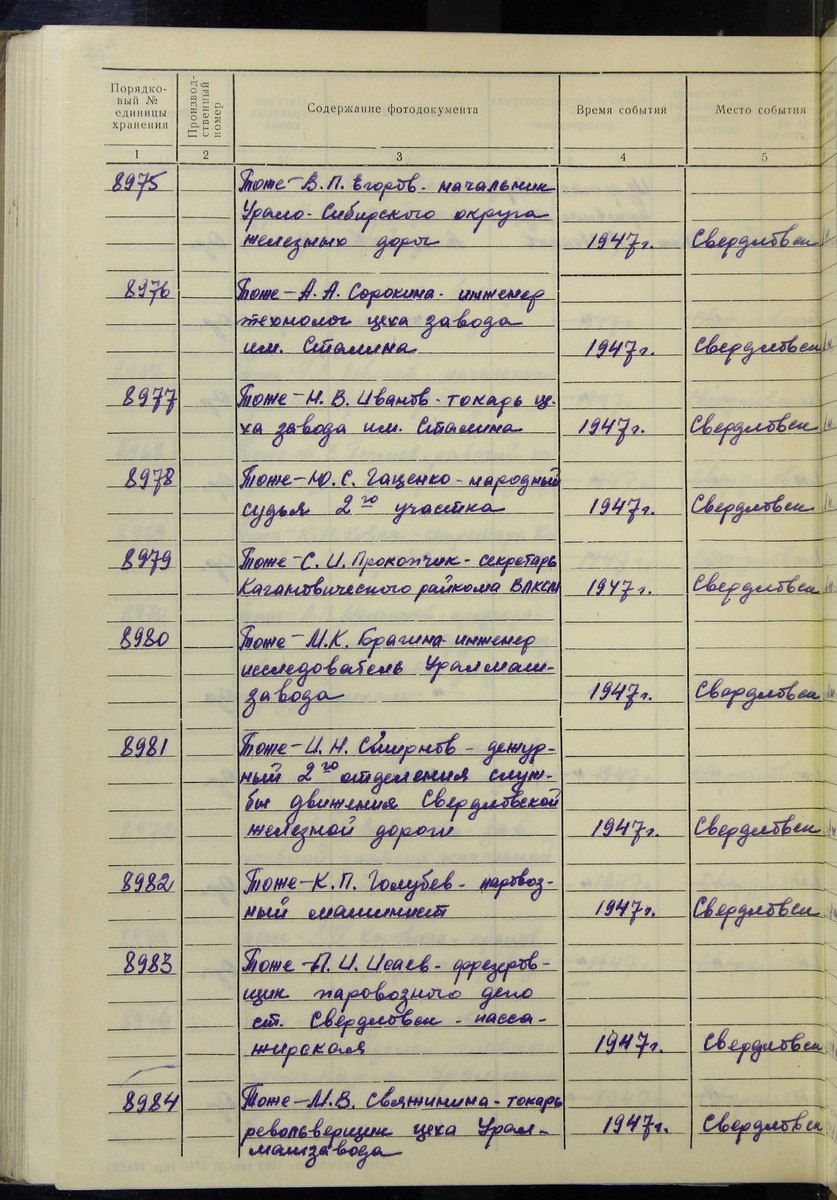 Порядко-
вый №
единицы
хранения
Производ-
ственный
номер
Содержание фотодокумента
Время события
Место события
1 2 3 4 5
8975 Тоже-В.П. Егоров- начальник
Урало-Сибирского округа
железных дорог 1947г. Свердловск
8976 Тоже-А.А. Сорокина- инженер
технолог цеха завода
им. Сталина 1947г. Свердловск
8977 Тоже-Н.В. Иванов-токарь це-
ха завода им. Сталина 1947г. Свердловск
8978 Тоже-Ю.С. Гаценко-народный
судья 2го участка 1947г. Свердловск
8979 Тоже-С.И. Прокопчик- секретарь
Кагановического райкома ВЛКСМ 1947г. Свердловск
8980 Тоже-М.К. Брагина-инженер
исследователь Уралмаш-
завода 1947г. Свердловск
8981 Тоже-И.Н. Смирнов- дежур-
ный 2го отделения служ-
бы движения Свердловской
железной дороги 1947г. Свердловск
8982 Тоже-К.П. Голубев- паровоз-
ный машинист 1947г. Свердловск
8983 Тоже-П.И. Исаев- фрезеров-
щик паровозного депо
ст. Свердловск-пасса-
жирская 1947г. Свердловск
8984 Тоже-М.В. Свяжинина-токарь
револьверщик цеха Урал-
машзавода 1947г. Свердловск